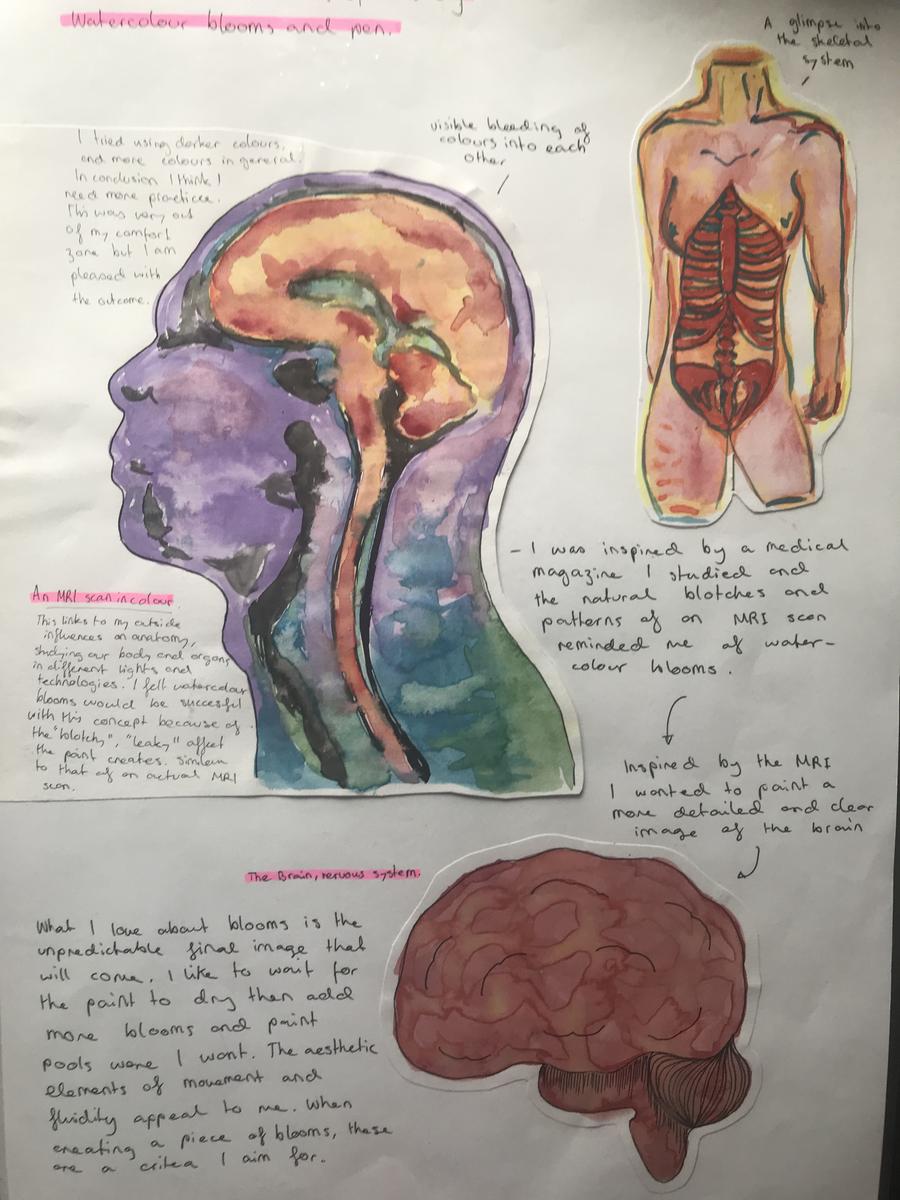 Watercolour blooms and pen.
A glimpse into
the skeletal
system
I tried using darker colours,
and more colours in general.
In conclusion I think I
need more practice.
This was very out
of my comfort
zone but I am
pleased with
the outcome.
visible bleeding of
colours into each
other
- I was inspired by a medical
magazine I studied and
the natural blotches and
patterns of an MRI scan
reminded me of water-
colour blooms.
An MRI scan in colour
This links to my outside
influences on anatomy,
studying our body and organs
in different lights and
technologies. I felt watercolour
blooms would be succesful
with this concept because of
the "blotchy", "leaky" affect
the paint creates. Similar
to that of an actual MRI
scan.
Inspired by the MRI
I wanted to paint a
more detailed and clear
image of the brain
The Brain, nervous system.
What I love about blooms is the
unpredictable final image that
will come. I like to wait for
the paint to dry then add
more blooms and paint
pools were I want. The aesthetic
elements of movement and
fluidity appeal to me. When
creating a piece of blooms, these
are a critea I aim for.